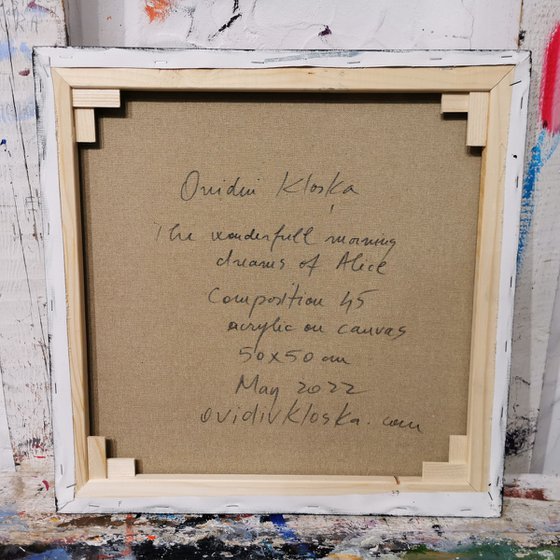 Ovidiu Kloska
The wonderfull morning
dreams of Alice
Composition 45
acrylic on canvas
50x50 cm
May 2022
ovidivkloska.com